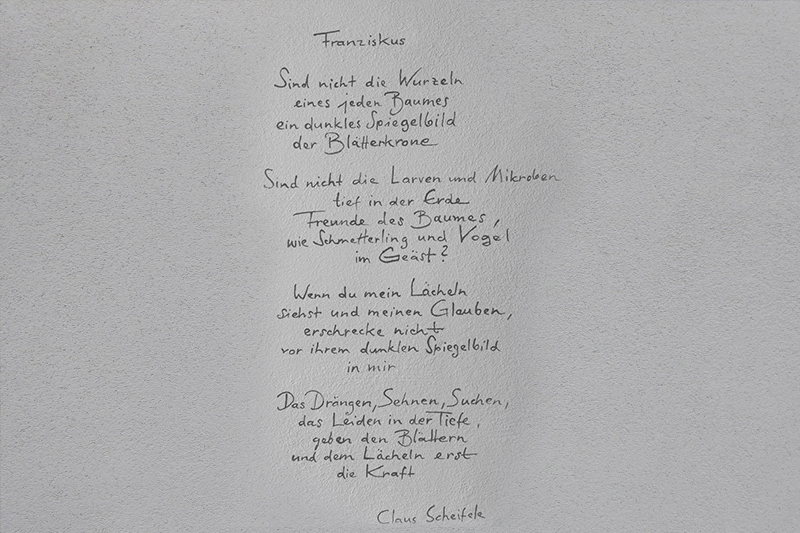 Franziskus
Sind nicht die Wurzeln
eines jeden Baumes
ein dunkles Spiegelbild
der Blätterkrone
Sind nicht die Larven und Mikroben
tief in der Erde
Freunde des Baumes,
wie Schmetterling und Vogel
im Geäst?
Wenn du mein Lächeln
siehst und meinen Glauben,
erschrecke nicht
vor ihrem dunklen Spiegelbild
in mir
Das Drängen, Sehnen, Suchen,
das Leiden in der Tiefe,
geben den Blättern
und dem Lächeln erst
die Kraft
Claus Scheifele